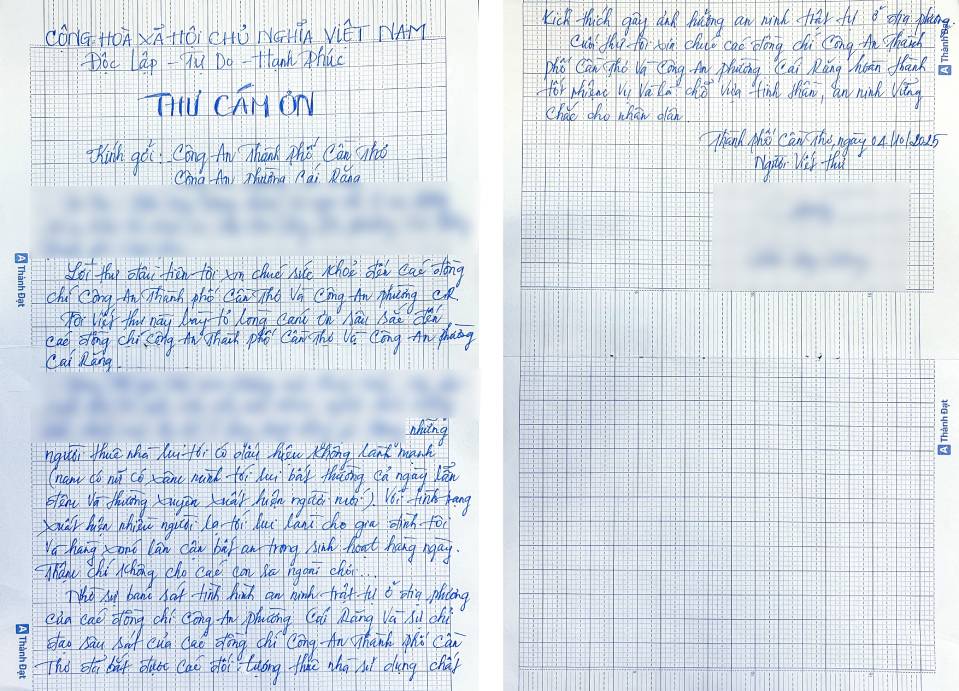 CỘNG HOÀ XÃ HỘI CHỦ NGHĨA VIỆT NAM
Độc Lập - Tự Do - Hạnh Phúc
THƯ CẢM ƠN
Kính gởi: Công An Thành phố Cần Thơ
Công An phường Cái Răng
Lời thư đầu tiên tôi xin chúc sức khoẻ đến các đồng
chí Công An Thành phố Cần Thơ Và Công An phường CR
Tôi Viết thư này bày tỏ lòng cảm ơn sâu sắc đến
các đồng chí công An Thành phố Cần Thơ Và Công An phường
Cái Răng.
những
người thuê nhà lui tới có dấu hiệu không lành mạnh
(nam có nữ có xăm mình tới lui bất thường cả ngày lẫn
đêm và thường xuyên xuất hiện người mới). Với tình trạng
xuất hiện nhiều người lạ tới lui làm cho gia đình tôi
Và hàng xóm lân cận bất an trong sinh hoạt hàng ngày.
Thậm chí không cho các con ra ngoài chơi...
Nhờ sự bám sát tình hình an ninh trật tự ở địa phương
của các đồng chí Công An phường Cái Răng Và sự chỉ
đạo sâu sát của các đồng chí Công An Thành phố Cần
Thơ đã bắt được các đối tượng thuê nhà sử dụng chất
Kích thích gây ảnh hưởng an ninh trật tự ở địa phương.
Cuối thư tôi xin chúc các đồng chí Công An Thành
phố Cần Thơ Và Công An phường Cái Răng hoàn thành
tốt nhiệm vụ Và là chỗ dựa tinh thần, an ninh Vững
Chắc cho nhân dân.
Thành phố Cần Thơ, ngày 04/10/2025
Người Viết thư
Thành Đạt
Thành Đạt
Thành Đạt
Thành Đạt